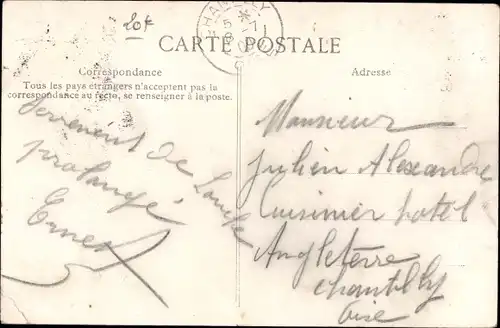 20f
CHANTILLY
CARTE POSTALE
Correspondance
Tous les pays étrangers n'acceptent pas la
correspondance au recto, se renseigner à la poste.
Adresse
de
prolongé
Ernest
Monsieur
Julien Alexandre
Cuisinier hotel
Angleterre
Chantilly
Oise